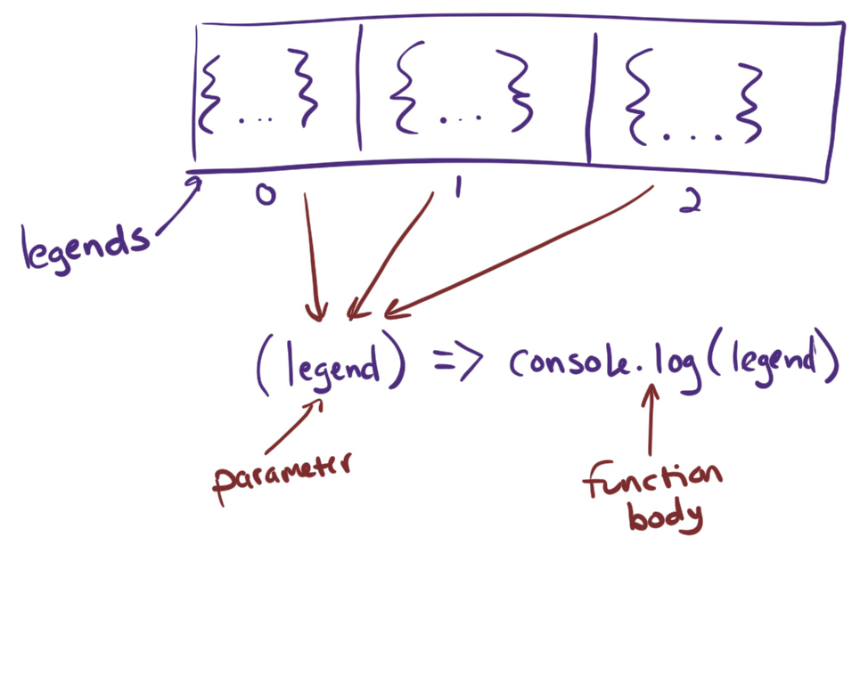 {...} {...} {...}
0 1 2
legends
(legend) => console.log(legend)
parameter
function
body